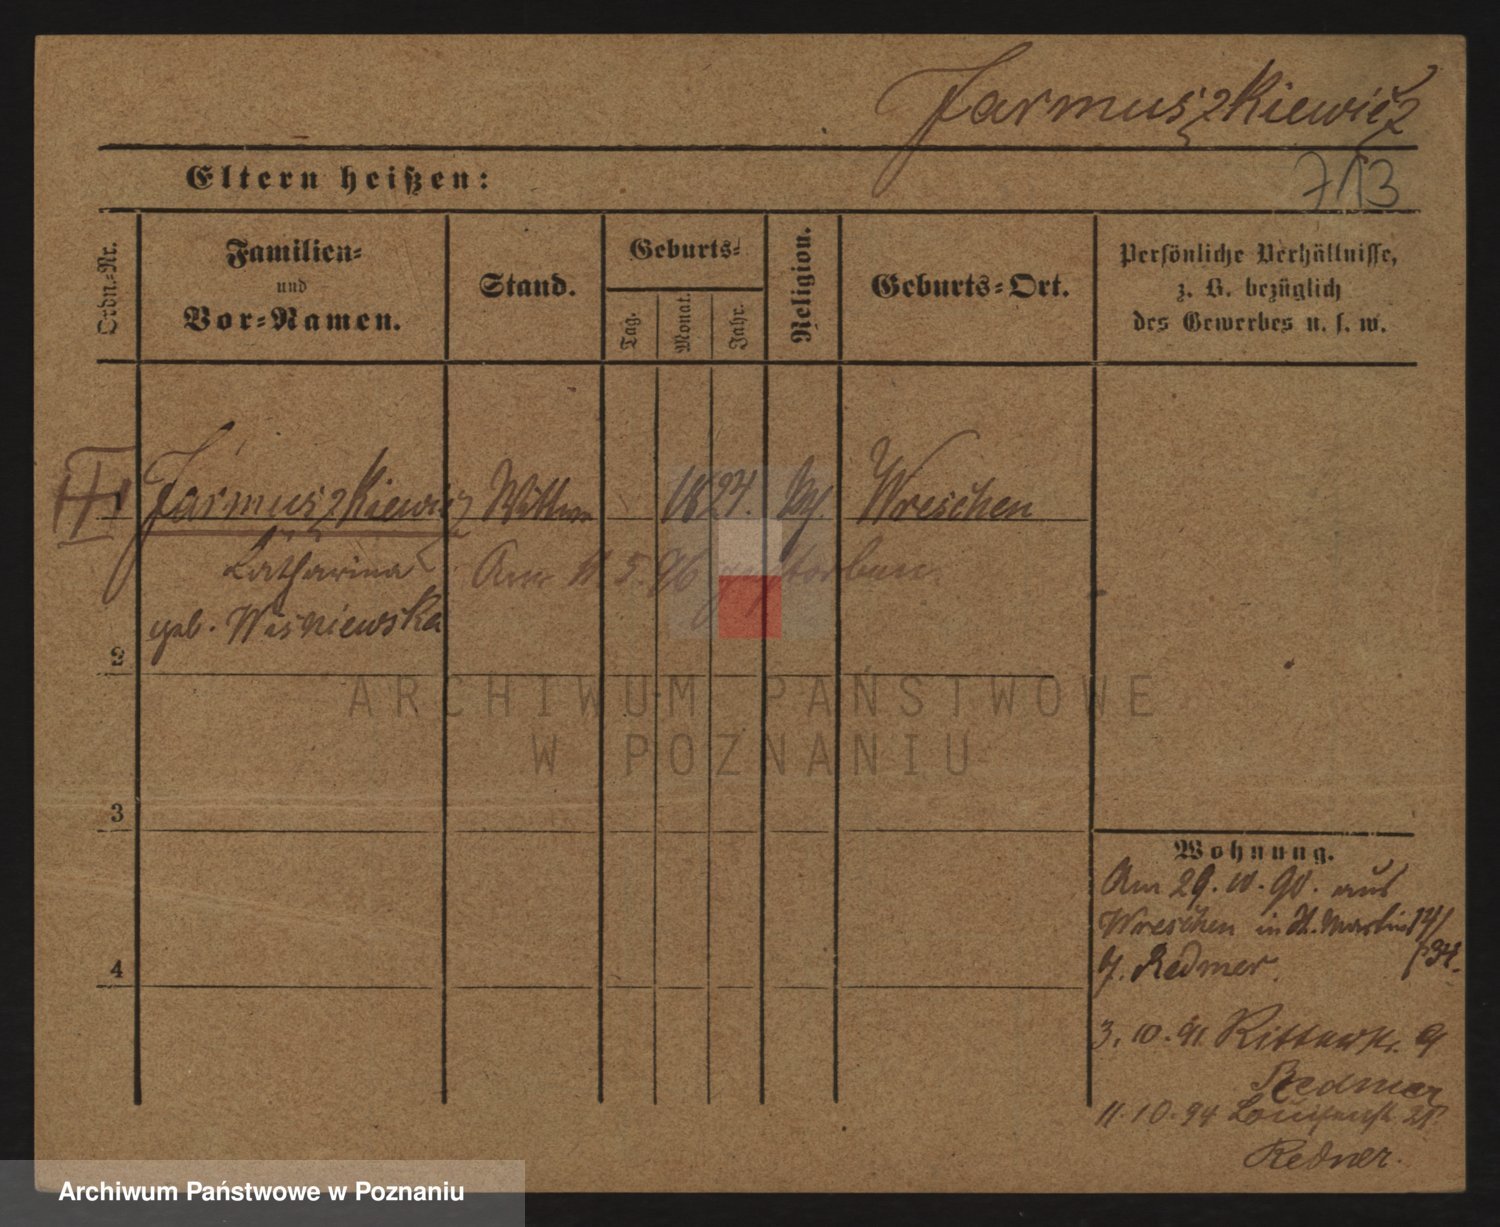 Jarmuszkiewicz
713
Eltern heißen:
Ordn.-Nr.
Familien-
und
Vor-Namen.
Stand.
Geburts-
Tag.
Monat.
Jahr.
Religion.
Geburts-Ort.
Persönliche Verhältnisse,
z. B. bezüglich
des Gewerbes u. s. w.
1 Jarmuszkiewicz Wittwe 1824. Wreschen
Catharina Am 11.5.96 gestorben.
geb. Wisniewska
2
ARCHIWUM PAŃSTWOWE
W POZNANIU
3
4
Wohnung.
Am 29.10.90. aus
Wreschen in St. Martin
b/. Redmer.
3.10.91 Ritterstr. 9
Redmer
11.10.94 Louisenstr.
Redner.
Archiwum Państwowe w Poznaniu